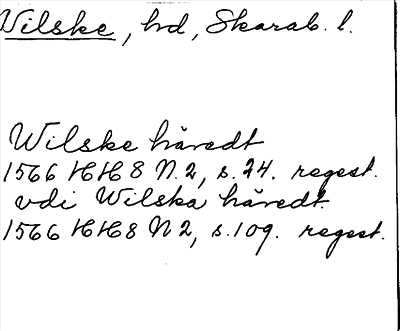 Vilske, hd, Skarab. l.
Wilske häredt
1566 HH8 N. 2, s. 24. regest.
vdi Wilska häredt.
1566 HH8 N 2, s. 109. regest.